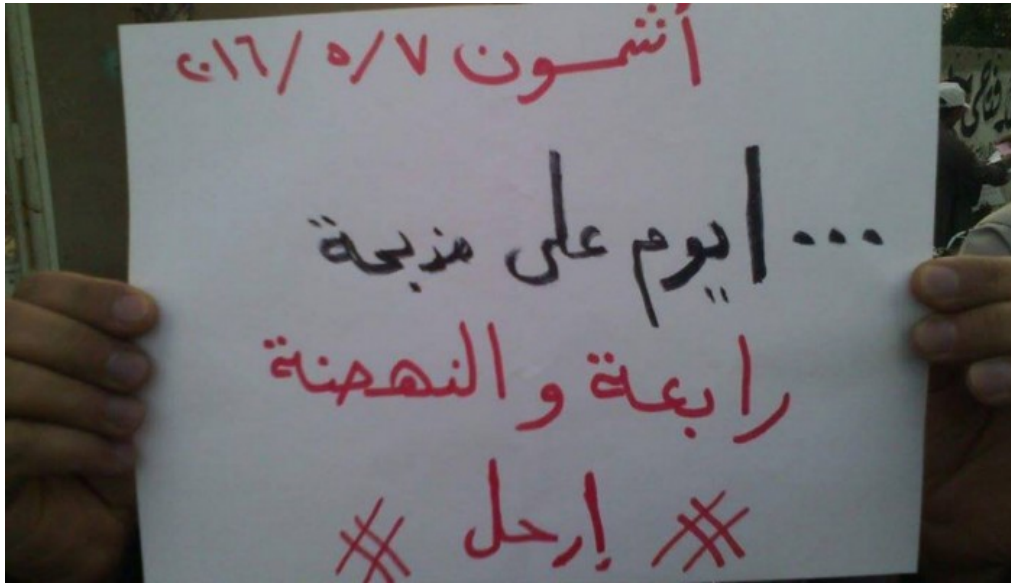 أشمون ٧/٥/٢٠١٦
١٠٠٠ يوم على مذبحة
رابعة والنهضة
# إرحل #